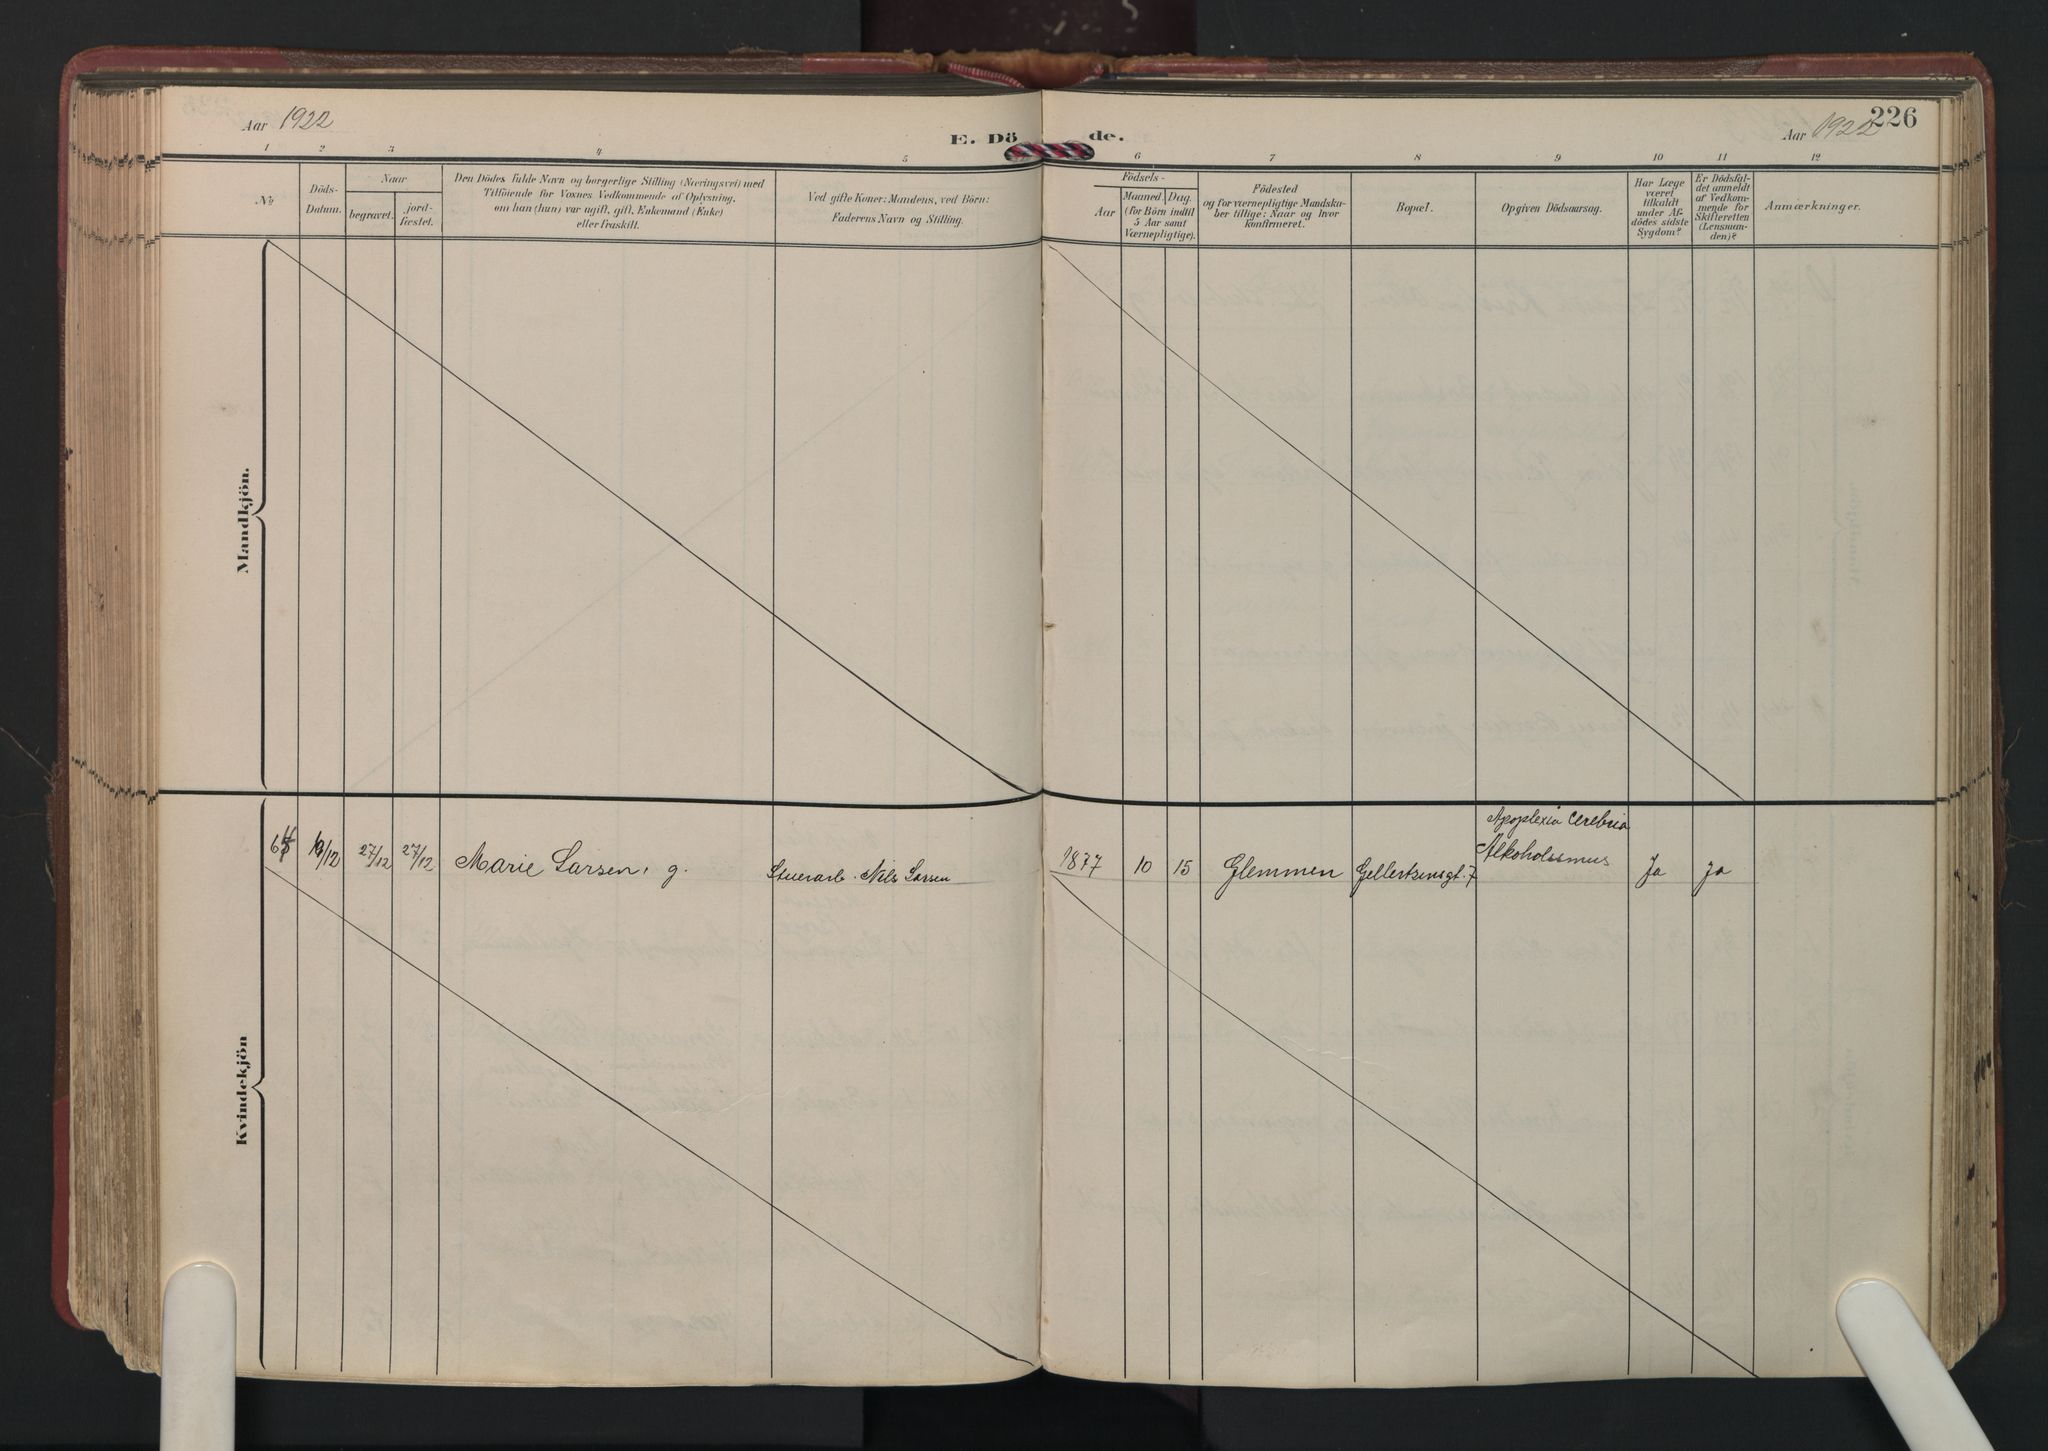 Aar 1922
E. Dö
de.
Aar 1922
226
1 2 3 4 5 6 7 8 9 10 11 12
No
Döds-
Datum.
Naar
begravet.
jord-
fæstet.
Den Dödes fulde Navn og borgerlige Stilling (Næringsvei) med
Tilföiende for Voxnes Vedkommende af Oplysning,
om han (hun) var ugift, gift, Enkemand (Enke)
eller fraskilt.
Ved gifte Koner: Mandens, ved Börn:
Faderens Navn og Stilling.
Födsels-
Aar
Maaned. Dag.
(for Börn indtil
5 Aar samt
Værnepligtige).
Födested
og for værnepligtige Mandska-
ber tillige: Naar og hvor
konfirmeret.
Bopæl.
Opgiven Dödsaarsag.
Har Læge
været
tilkaldt
under Af-
dödes sidste
Sygdom?
Er Dödsfal-
det anmeldt
af Vedkom-
mende for
Skifteretten
(Lensman-
den)?
Anmærkninger.
Mandkjön.
Kvindekjön
27/12 27/12 Marie Larsen, g. Stuerarb. Nils Larsen 1877 10 15 Glemmen Gellertsensgt. 7
Apoplexia cerebria
Alkoholismus
Ja Ja